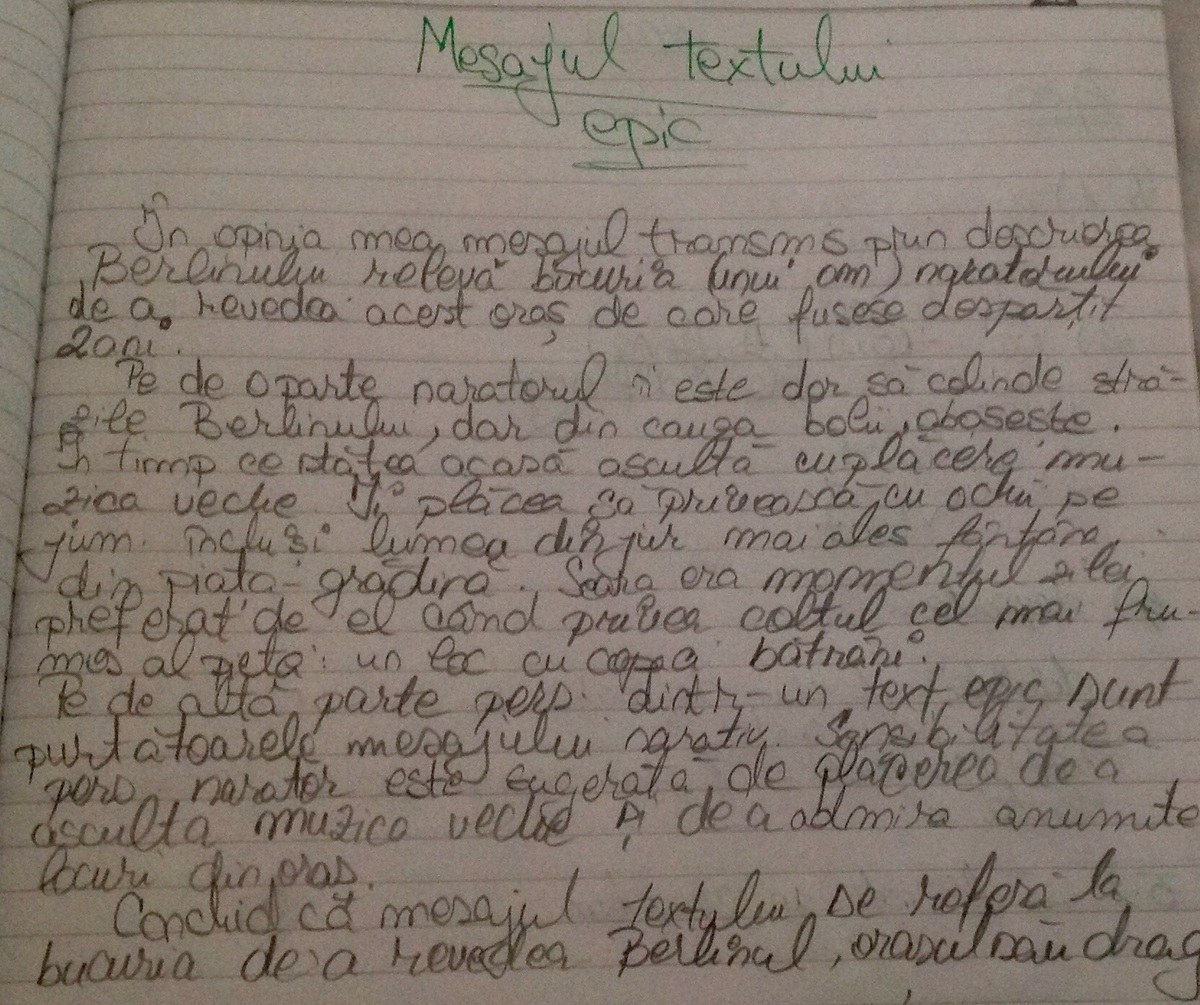 Mesajul textului
epic
În opinia mea, mesajul transms prin descrierea
Berlinului relevă bucuria (unui om) naratorului
de a revedea acest oraș de care fusese despărțit
2ani.
Pe de o parte naratorul îi este dor să colinde stră-
zile Berlinului, dar din cauza bolii, obosește.
În timp ce stătea acasă ascultă cu plăcere mu-
zica veche. Îi plăcea să privească cu ochii pe
jum. închiși lumea din jur mai ales fântâna
din piata-grădină. Seara era momentul zilei
preferat de el când privea colțul cel mai fru-
mos al pieței: un loc cu copaci bătrâni.
Pe de altă parte pers. dintr-un text epic sunt
purtătoarele mesajului narativ. Sensibilitatea
pers. narator este sugerată de plăcerea de a
asculta muzica veche și de a admira anumite
locuri din oraș.
Conchid că mesajul textului se referă la
bucuria de a revedea Berlinul, orașul său drag